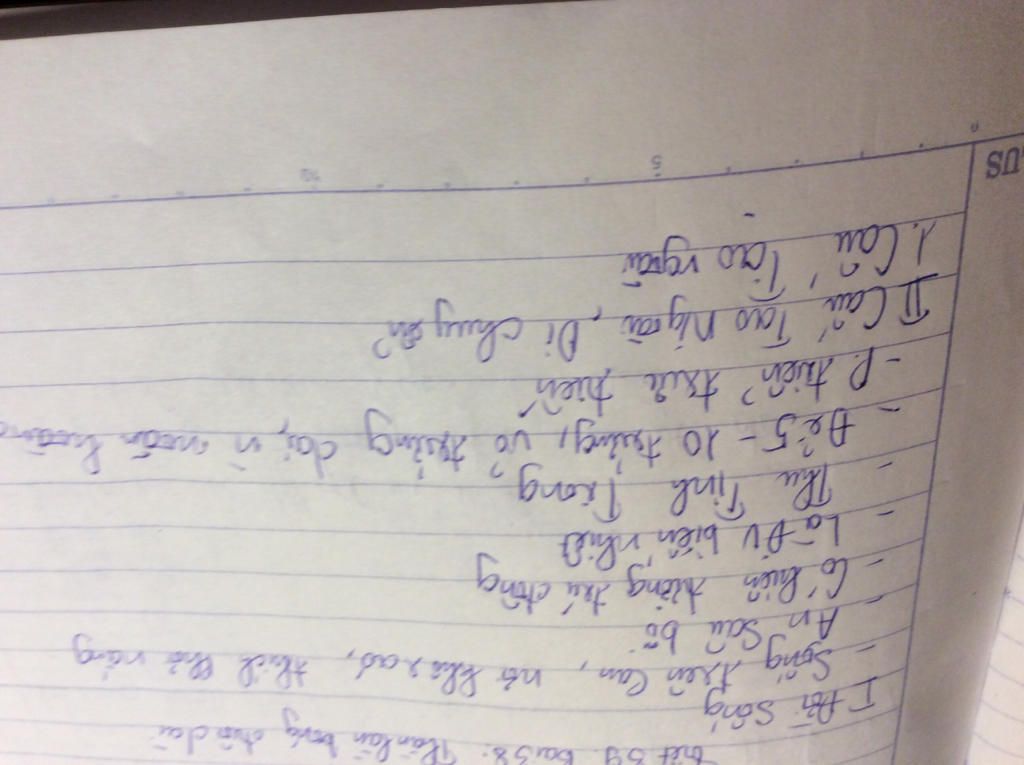 Tiết 39 Bài 38: Thằn lằn bóng đuôi dài
I Đời Sống
- Sống trên cạn, nơi khô ráo, thích phơi nắng
- Ăn sâu bọ
- Có hiện tượng trú đông
- Là ĐV biến nhiệt
- Thụ Tinh Trong
- Đẻ 5 - 10 trứng, vỏ trứng dai, noãn hoàng
- P. triển trực tiến
II Cấu Tạo Ngoài, Di Chuyển?
1. Cấu Tạo ngoài
-
5
10
US